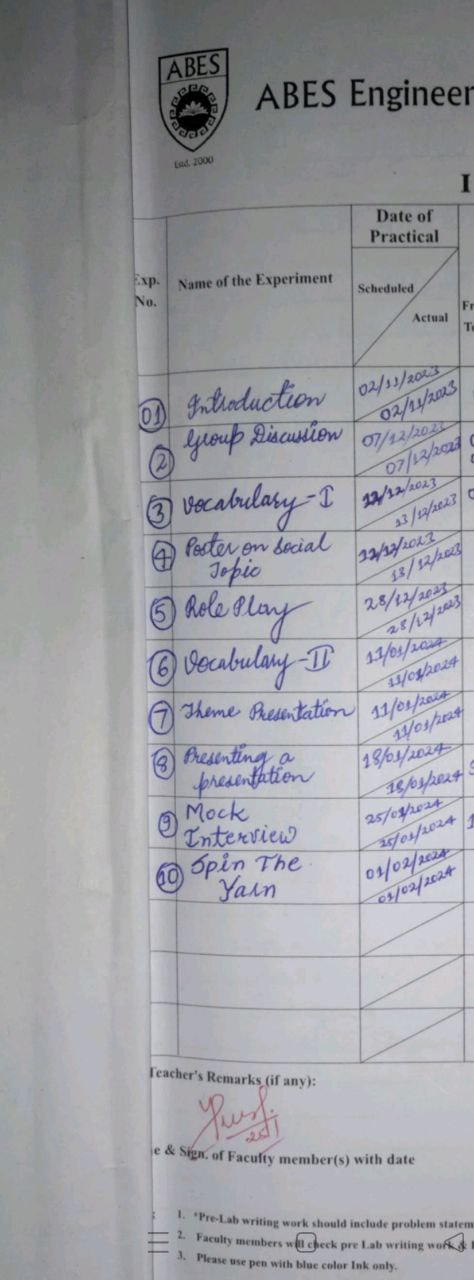 ABES
Estd. 2000
ABES Engineer
I
Exp. No.
Name of the Experiment
Date of Practical
Scheduled
Actual
Fr
To
01 Introduction 02/11/2023 02/11/2023
2 Group Discussion 07/12/2023 07/12/2023
3 Vocabulary-I 12/12/2023 13/12/2023
4 Poster on Social 12/12/2023
Topic 13/12/2023
5 Role Play 28/12/2023 28/12/2023
6 Vocabulary-II 11/01/2024 11/01/2024
7 Theme Presentation 11/01/2024 11/01/2024
8 Presenting a 18/01/2024
presentation 18/01/2024
9 Mock 25/01/2024
Interview 25/01/2024
10 Spin The 01/02/2024
Yarn 01/02/2024
Teacher's Remarks (if any):
e & Sign. of Faculty member(s) with date
1. *Pre-Lab writing work should include problem statem
2. Faculty members will check pre Lab writing work &
3. Please use pen with blue color Ink only.